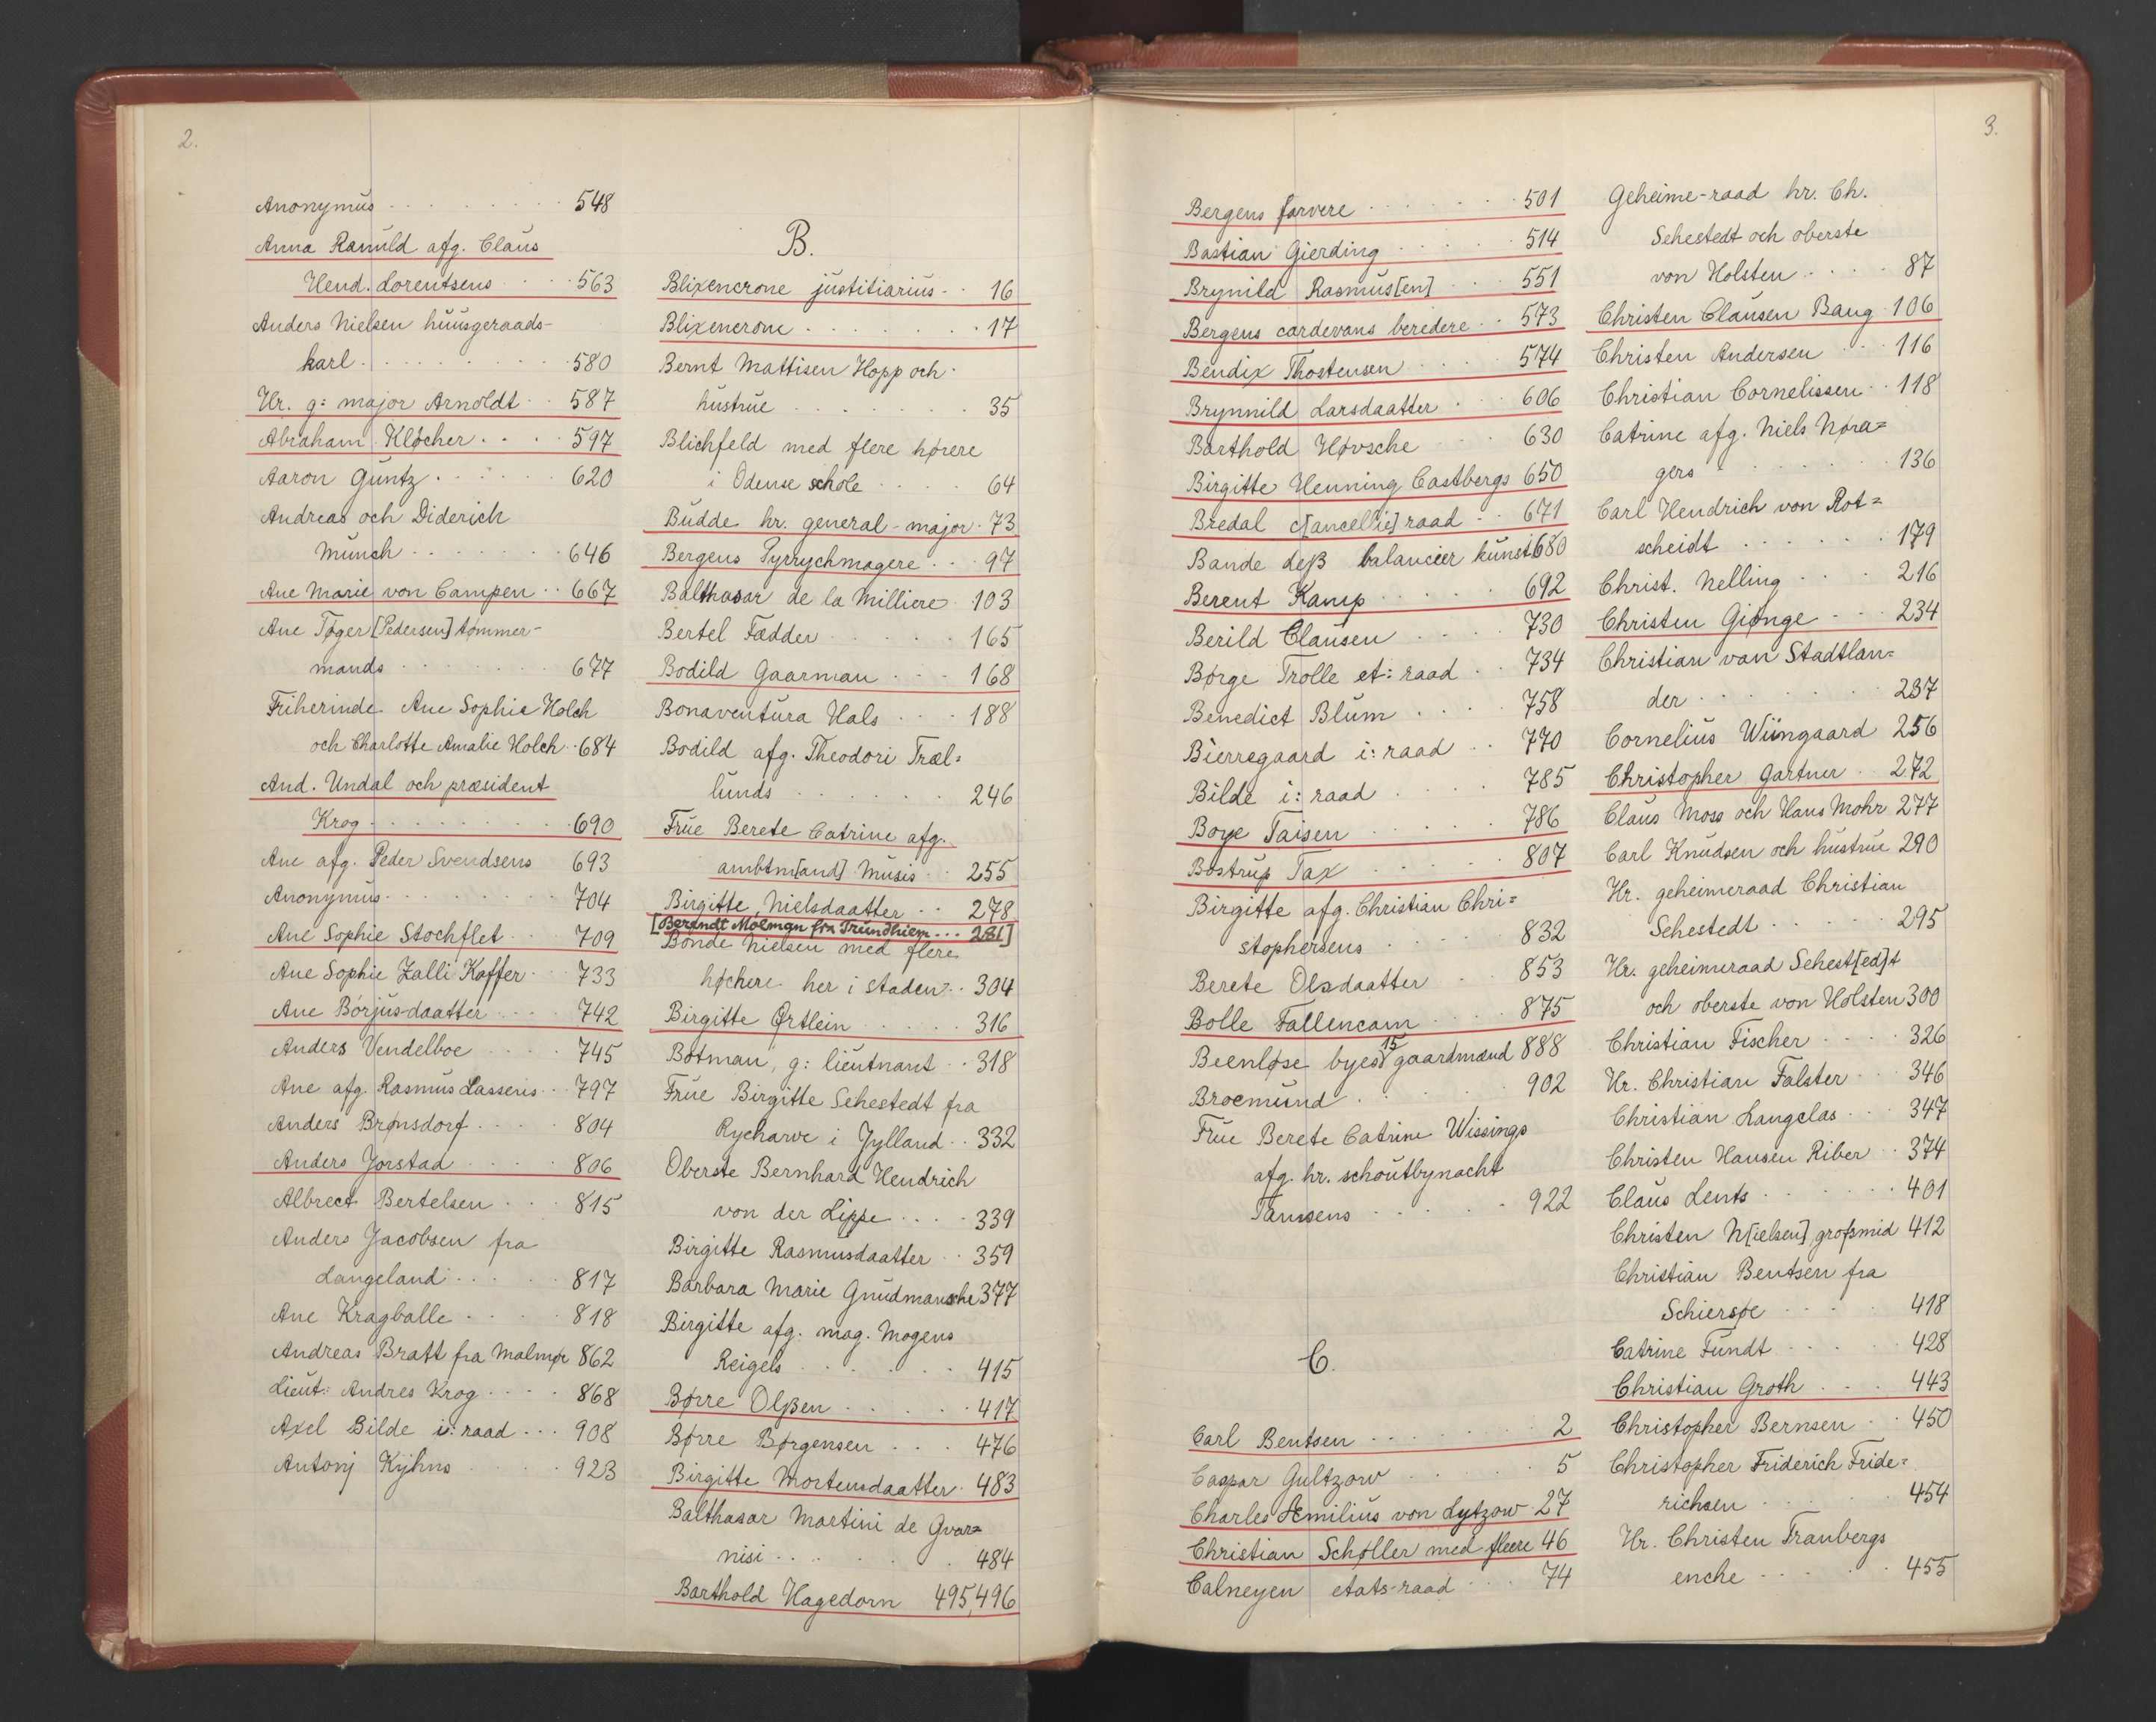 2.
Anonymus . . . . . . . . . 548
Anna Ranuld afg. Claus
Hend. Lorentsens . . . . 563
Anders Nielsen huusgeraads-
karl . . . . . . . . . 580
Hr. g: major Arnoldt . . 587
Abraham Kløcher . . . . 597
Aaron Guntz . . . . . . 620
Andreas och Diderich
Munch . . . . . . . . 646
Ane Marie von Campen . . 667
Ane Tøger [Pedersen] tømmer-
mands . . . . . . . . 677
Friherinde Ane Sophie Holch
och Charlotte Amalie Holch . . 684
And. Undal och præsident
Krog . . . . . . . . . 690
Ane afg. Peder Svendsens 693
Anonymus . . . . . . . . 704
Ane Sophie Stochflet . . . 709
Ane Sophie Zalli Kaffer . . . 733
Ane Børjus-daatter . . . . 742
Anders Vendelboe . . . . 745
Ane afg. Rasmus Lasseris . . . 797
Anders Brønsdorf . . . . . 804
Anders Jorstad . . . . . 806
Albrect Bertelsen . . . 815
Anders Jacobsen fra
Langeland . . . . . 817
Ane Kragballe . . . . 818
Andreas Bratt fra Malmøe 862
Lieut: Andres Krog . . . . 868
Axel Bilde i: raad . . . 908
Antonj Kyhns . . . . 923
B.
Blixencrone justitiarius . . 16
Blixencrone . . . . . . . . 17
Bernt Mattisen Hopp och
hustrue . . . . . . . 35
Blichfeld med flere hørere
i Odense schole . . . . 64
Budde hr. general-major . 73
Bergens Pyrrychmagere . . . 97
Balthasar de la Milliere 103
Bertel Fædder . . . . . . 165
Bodild Gaarman . . . 168
Bonaventura Hals . . . 188
Bodild afg. Theodori Træl=
lunds . . . . . . . 246
Frue Berete Catrine afg.
ambtm[and] Musis . . 255
Birgitte Nielsdaatter . . 278
[Berendt Molman fra Trundhiem . . . 281]
Bonde Nielsen med flere
høchere her i staden . . 304
Birgitte Ørtlein . . . . . 316
Botman, g: lieutnant . . 318
Frue Birgitte Sehestedt fra
Rycharve i Jylland . . 332
Oberste Bernhard Hendrich
von der Lippe . . . . 339
Birgitte Rasmusdaatter . . 359
Barbara Marie Gnudmansche 377
Birgitte afg. mag. Mogens
Reigels . . . . . . . 415
Børre Olßen . . . . . . 417
Børre Børgensen . . . 476
Birgitte Mortensdaatter . 483
Balthasar Martini de Gvar=
nisi . . . . . . . . 484
Barthold Hagedorn 495,496
3.
Bergens farvere . . . . . . . 501
Bastian Gierding . . . . . 514
Brynild Rasmus[en] . . . 551
Bergens cardevans beredere . . 573
Bendix Thostensen . . . . 574
Brynnild Larsdaatter . . . 606
Barthold Høvsche . . . 630
Birgitte Henning Castbergs 650
Bredal c[ancellie]raad . . 671
Bande deß balancier kunst 680
Berent Kamp . . . . . 692
Berild Clausen . . . . 730
Børge Trolle et: raad . . 734
Benedict Blum . . . . 758
Bierregaard i: raad . . 770
Bilde i: raad . . . . . 785
Boye Taisen . . . . . . 786
Bostrup Tax . . . . . 807
Birgitte afg. Christian Chri=
stophersens . . . . . 832
Berete Olsdaatter . . . 853
Bolle Fallencam . . . . 875
Beenløse byes 15 gaardmænd 888
Brocmund . . . . . . 902
Frue Berete Catrine Wissings
afg. hr. schoutbynacht
Tamsens . . . . . . 922
C.
Carl Bentsen . . . . . . . 2
Caspar Gultzow . . . . . . 5
Charles Æmilius von Lytzow . 27
Christian Schøller med fleere 46
Calneyen etats-raad . . . 74
Geheime-raad hr. Ch.
Sehestedt och oberste
von Holsten . . . . 87
Christen Clausen Baug 106
Christen Andersen . . . 116
Christian Cornelissen . . 118
Catrine afg. Niels Nøra=
gers . . . . . . . 136
Carl Hendrich von Rot=
scheidt . . . . . . . 179
Christ. Nelling . . . . 216
Christen Giønge . . . 234
Christian van Stadtlan=
der . . . . . . . . 237
Cornelius Wiingaard 256
Christopher Gartner . . 272
Claus Moss och Hans Mohr 277
Carl Knudsen och hustrue 290
Hr. geheimeraad Christian
Sehestedt . . . . . . 295
Hr. geheimeraad Sehest[ed]t
och oberste von Holsten 300
Christian Fischer . . . . 326
Hr. Christian Falster . . . 346
Christian Langelas . . . 347
Christen Hansen Riber . . 374
Claus Lents . . . . . . 401
Christen N[ielsen] großmid 412
Christian Bentsen fra
Schiersøe . . . . 418
Catrine Fundt . . . . . 428
Christian Groth . . . 443
Christopher Bernsen . . 450
Christopher Friderich Fride=
richsen . . . . . . 454
Hr. Christen Tranbergs
enche . . . . . . 455